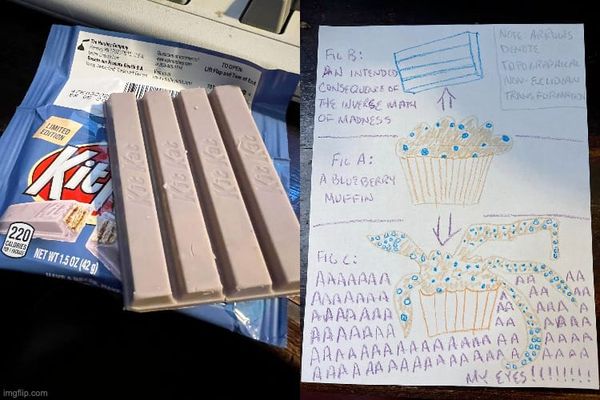 The Hershey Company
Questions or comments?
TO OPEN:
Lift Flap and Tear at End
LIMITED
EDITION
Kit
Kit Kat
Kit Kat
Kit Kat
Kit Kat
220
CALORIES
PER 1 PACKAGE
NET WT 1.5 OZ (42 g)
imgflip.com
FIG B:
AN INTENDED
CONSEQUENCE OF
THE INVERSE MATH
OF MADNESS
NOTE: ARROWS
DENOTE
TOPOGRAPHICAL
NON-EUCLIDIAN
TRANSFORMATION
FIG A:
A BLUEBERRY
MUFFIN
FIG C:
AAAAAAA AA AA
AAAAAAA A AA AA
AAAAAAA AA AAA A
AAAAAAA AA A AAAA
AAAAAAAAAAAAAAA A AAAA
AAAAAAAAAAAAAAA A AAAA
MY EYES!!!!!!!!